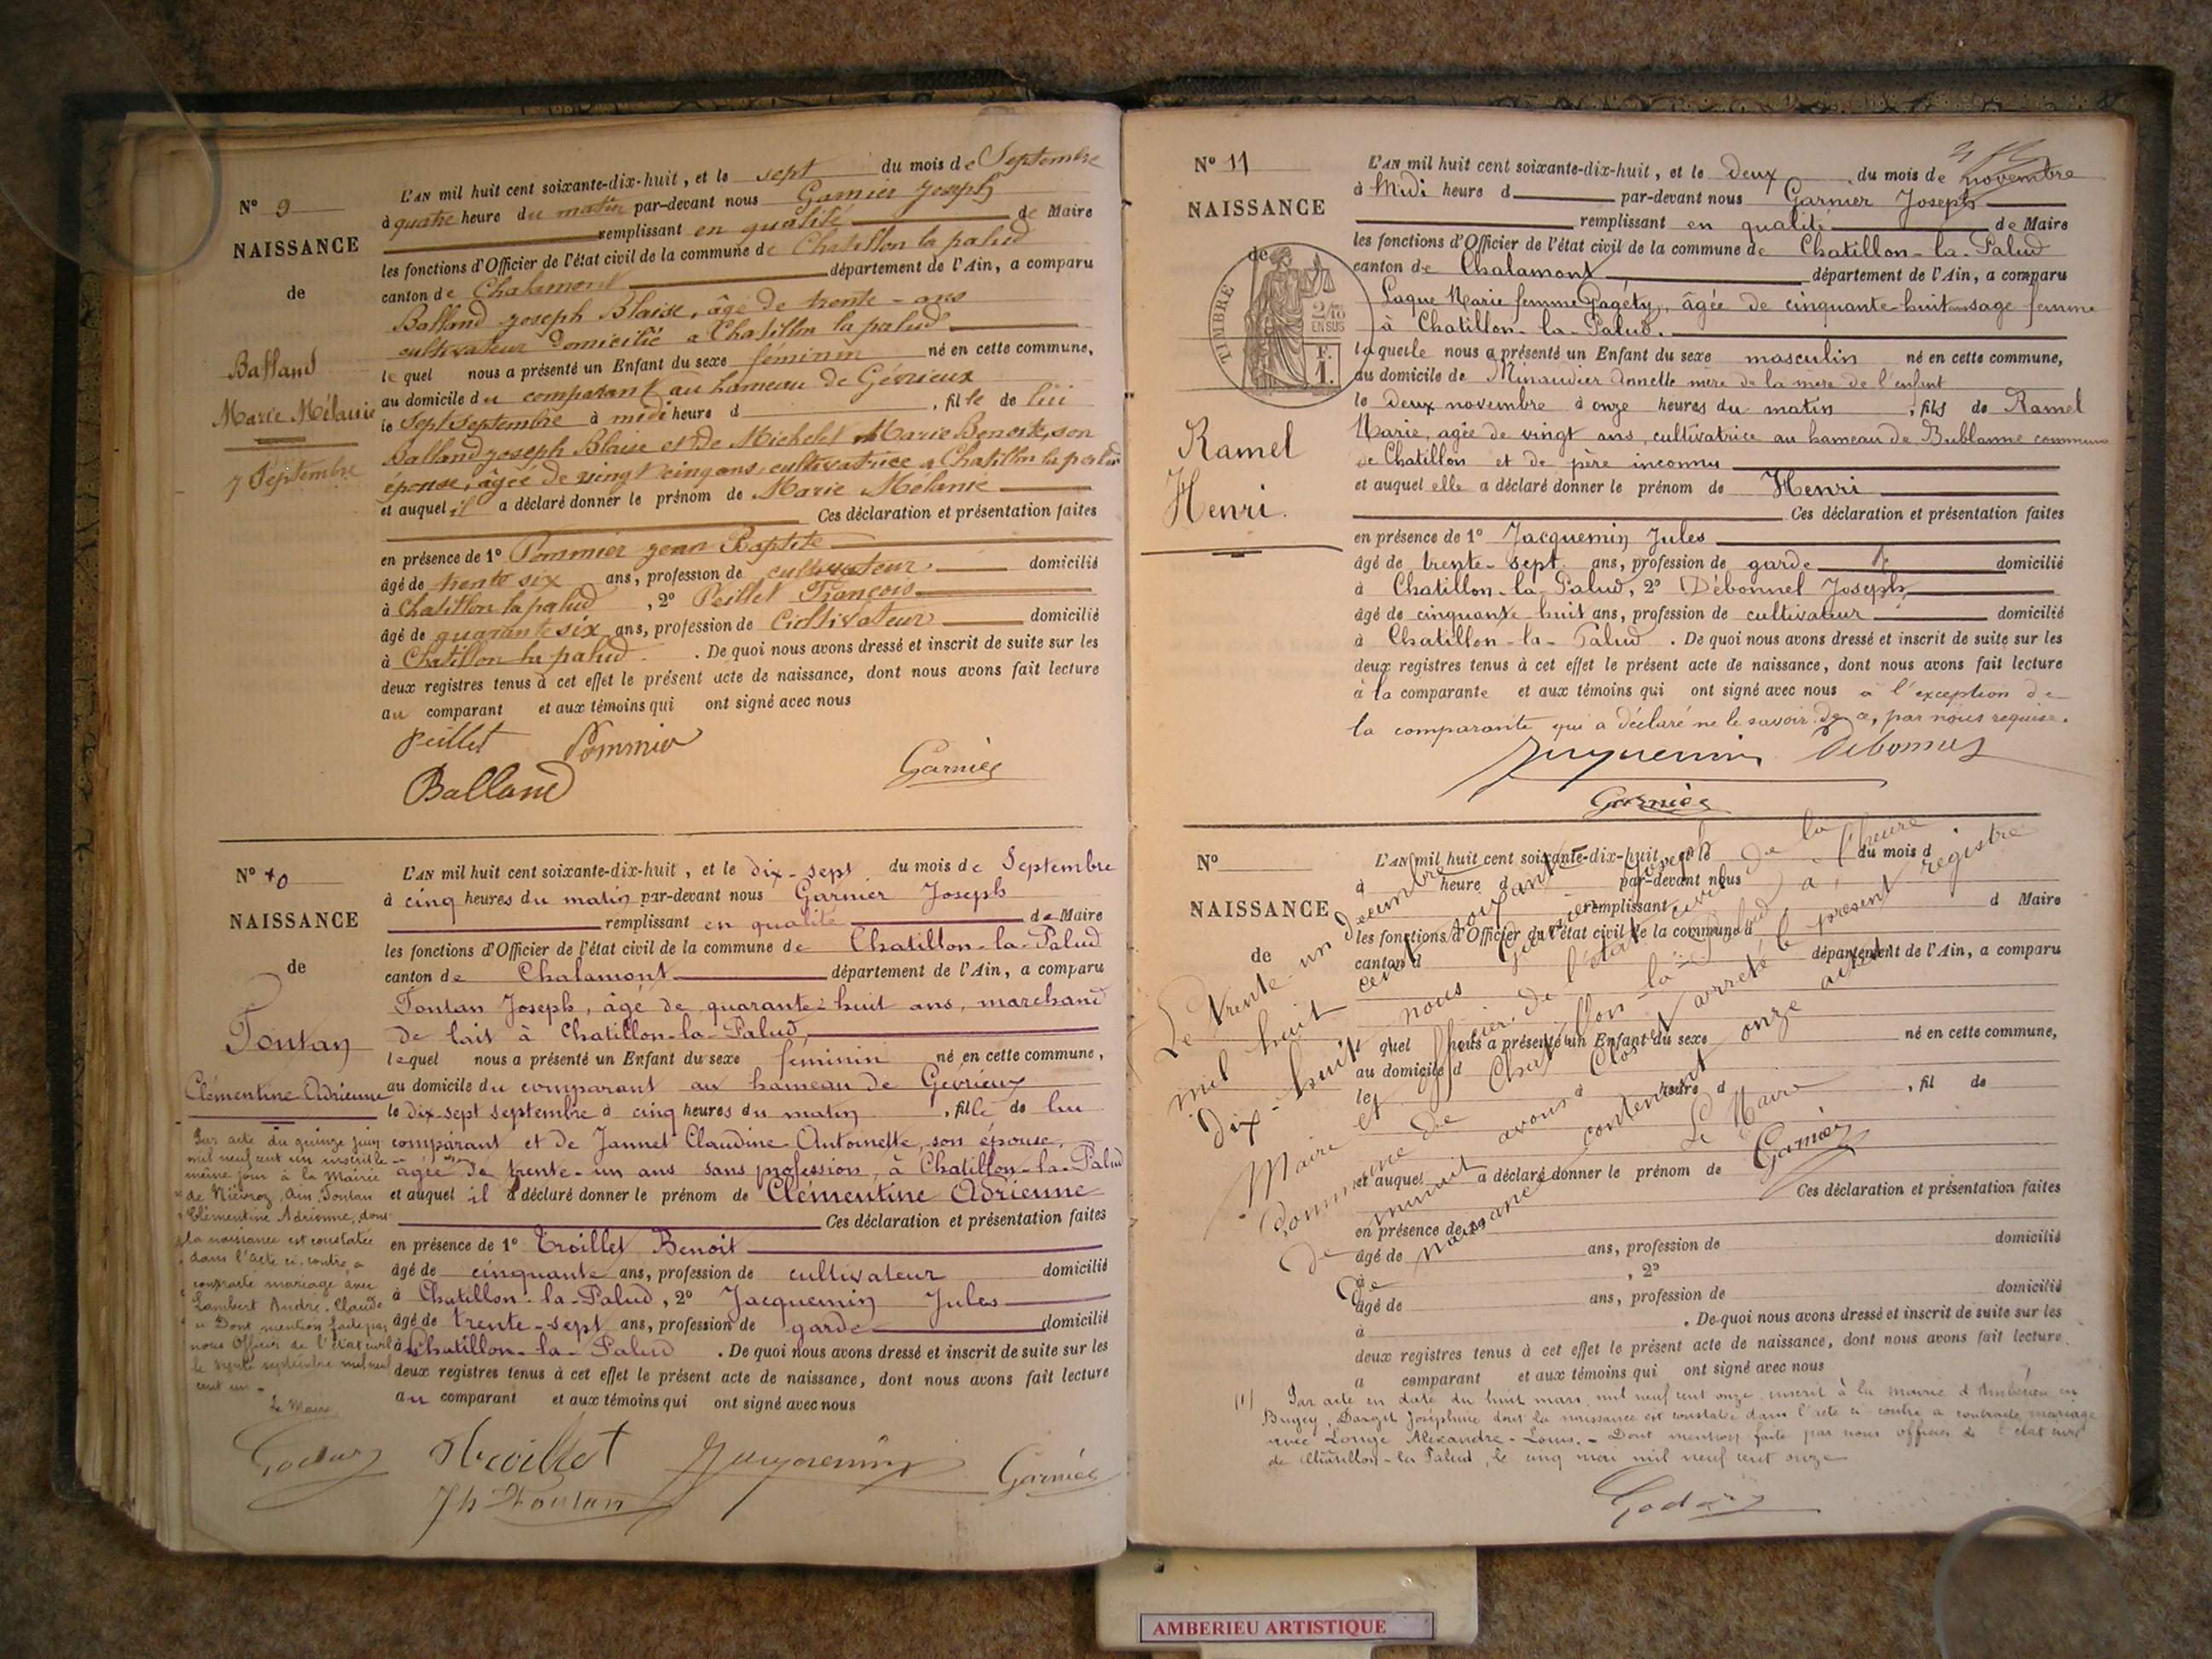 N° 9
NAISSANCE
de
Balland
Marie Mélanie
7 Septembre
L'AN mil huit cent soixante-dix-huit, et le sept du mois de Septembre
à quatre heure du matin par-devant nous Garnier Joseph
remplissant en qualité de Maire
les fonctions d'Officier de l'état civil de la commune de Chatillon la palud
canton de Chalamont département de l'Ain, a comparu
Balland Joseph Blaise, âgé de trente-ans
cultivateur domicilié a Chatillon la palud
lequel nous a présenté un Enfant du sexe féminin né en cette commune,
au domicile du comparant au hameau de Gévrieux
le sept septembre à midi heure d , fille de lui
Balland joseph Blaise et de Michelet Marie Benoite, son
épouse, âgée de vingt cinq ans, cultivatrice a Chatillon la palud
et auquel il a déclaré donner le prénom de Marie Mélanie
Ces déclaration et présentation faites
en présence de 1° Pommier jean Baptite
âgé de trente six ans, profession de cultivateur domicilié
à Chatillon la palud , 2° Peillet François
âgé de quarante six ans, profession de Cultivateur domicilié
à Chatillon la palud . De quoi nous avons dressé et inscrit de suite sur les
deux registres tenus à cet effet le présent acte de naissance, dont nous avons fait lecture
au comparant et aux témoins qui ont signé avec nous
Peillet Pommier
Balland Garnier
N° 10
NAISSANCE
de
Tontan
Clémentine Adrienne
L'AN mil huit cent soixante-dix-huit, et le dix-sept du mois de Septembre
à cinq heures du matin par-devant nous Garnier Joseph
remplissant en qualité de Maire
les fonctions d'Officier de l'état civil de la commune de Chatillon-la-Palud
canton de Chalamont département de l'Ain, a comparu
Tontan Joseph, âgé de quarante-huit ans, marchand
de lait à Chatillon-la-Palud,
lequel nous a présenté un Enfant du sexe féminin né en cette commune,
au domicile du comparant au hameau de Gévrieux
le dix-sept septembre à cinq heures du matin , fille de lui
comparant et de Jannet Claudine Antoinette, son épouse,
âgée de trente-un ans sans profession, à Chatillon-la-Palud
et auquel il a déclaré donner le prénom de Clémentine Adrienne
Ces déclaration et présentation faites
en présence de 1° Troillet Benoit
âgé de cinquante ans, profession de cultivateur domicilié
à Chatillon-la-Palud, 2° Jacquemin Jules
âgé de trente-sept ans, profession de garde domicilié
à Chatillon-la-Palud . De quoi nous avons dressé et inscrit de suite sur les
deux registres tenus à cet effet le présent acte de naissance, dont nous avons fait lecture
au comparant et aux témoins qui ont signé avec nous
Par acte du quinze juin
mil neuf cent un inscrit le
même jour à la Mairie
de Niévroz, Ain, Tontan
Clémentine Adrienne, dont
la naissance est constatée
dans l'acte ci-contre, a
contracté mariage avec
Lambert André-Claude
Dont mention faite par
nous Officier de l'état civil
le septembre mil neuf
cent un
Le Maire
Godar Troillet Jacquemin Garnier
Jh Tontan
N° 11
NAISSANCE
de
TIMBRE
2/10
EN SUS
F.
1.
Ramel
Henri.
L'AN mil huit cent soixante-dix-huit, et le deux du mois de novembre
à Midi heure d par-devant nous Garnier Joseph
remplissant en qualité de Maire
les fonctions d'Officier de l'état civil de la commune de Chatillon-la-Palud
canton de Chalamont département de l'Ain, a comparu
Laque Marie femme Pagéty, âgée de cinquante-huit ans sage femme
à Chatillon-la-Palud.
laquelle nous a présenté un Enfant du sexe masculin né en cette commune,
au domicile de Minaudier Annette mère de la mère de l'enfant
le deux novembre à onze heures du matin , fils de Ramel
Marie, agée de vingt ans, cultivatrice au hameau de Bublanne commune
de Chatillon et de père inconnu
et auquel elle a déclaré donner le prénom de Henri
Ces déclaration et présentation faites
en présence de 1° Jacquemin Jules
âgé de trente-sept ans, profession de garde domicilié
à Chatillon-la-Palud, 2° Débonnel Joseph
âgé de cinquante-huit ans, profession de cultivateur domicilié
à Chatillon-la-Palud . De quoi nous avons dressé et inscrit de suite sur les
deux registres tenus à cet effet le présent acte de naissance, dont nous avons fait lecture
à la comparante et aux témoins qui ont signé avec nous à l'exception de
la comparante qui a déclaré ne le savoir de ce, par nous requise.
Jacquemin Debonnel
Garnier
N°
NAISSANCE
de
L'AN mil huit cent soixante-dix-huit, et le du mois d
à heure d par-devant nous
remplissant d Maire
les fonctions d'Officier de l'état civil de la commune d
canton d département de l'Ain, a comparu
l quel nous a présenté un Enfant du sexe né en cette commune,
au domicile d
le à heure d , fil de
et auquel a déclaré donner le prénom de
Ces déclaration et présentation faites
en présence de 1°
âgé de ans, profession de domicilié
à , 2°
âgé de ans, profession de domicilié
à . De quoi nous avons dressé et inscrit de suite sur les
deux registres tenus à cet effet le présent acte de naissance, dont nous avons fait lecture
a comparant et aux témoins qui ont signé avec nous
Le trente-un décembre
mil huit cent soixante
dix-huit nous Garnier Joseph
Maire et officier de l'état civil de la
commune de Chatillon-la-Palud, à l'heure
de minuit avons clos et arrêté le présent registre
de naissance contenant onze actes
Le Maire
Garnier
(1) Par acte en date du huit mars mil neuf cent onze inscrit à la mairie d'Ambérieu en
Bugey, Joséphine dont la naissance est constatée dans l'acte ci contre a contracté mariage
avec Longe Alexandre-Louis. - Dont mention faite par nous officier de l'état civil
de Chatillon-la Palud, le cinq mai mil neuf cent onze
Godar
AMBERIEU ARTISTIQUE